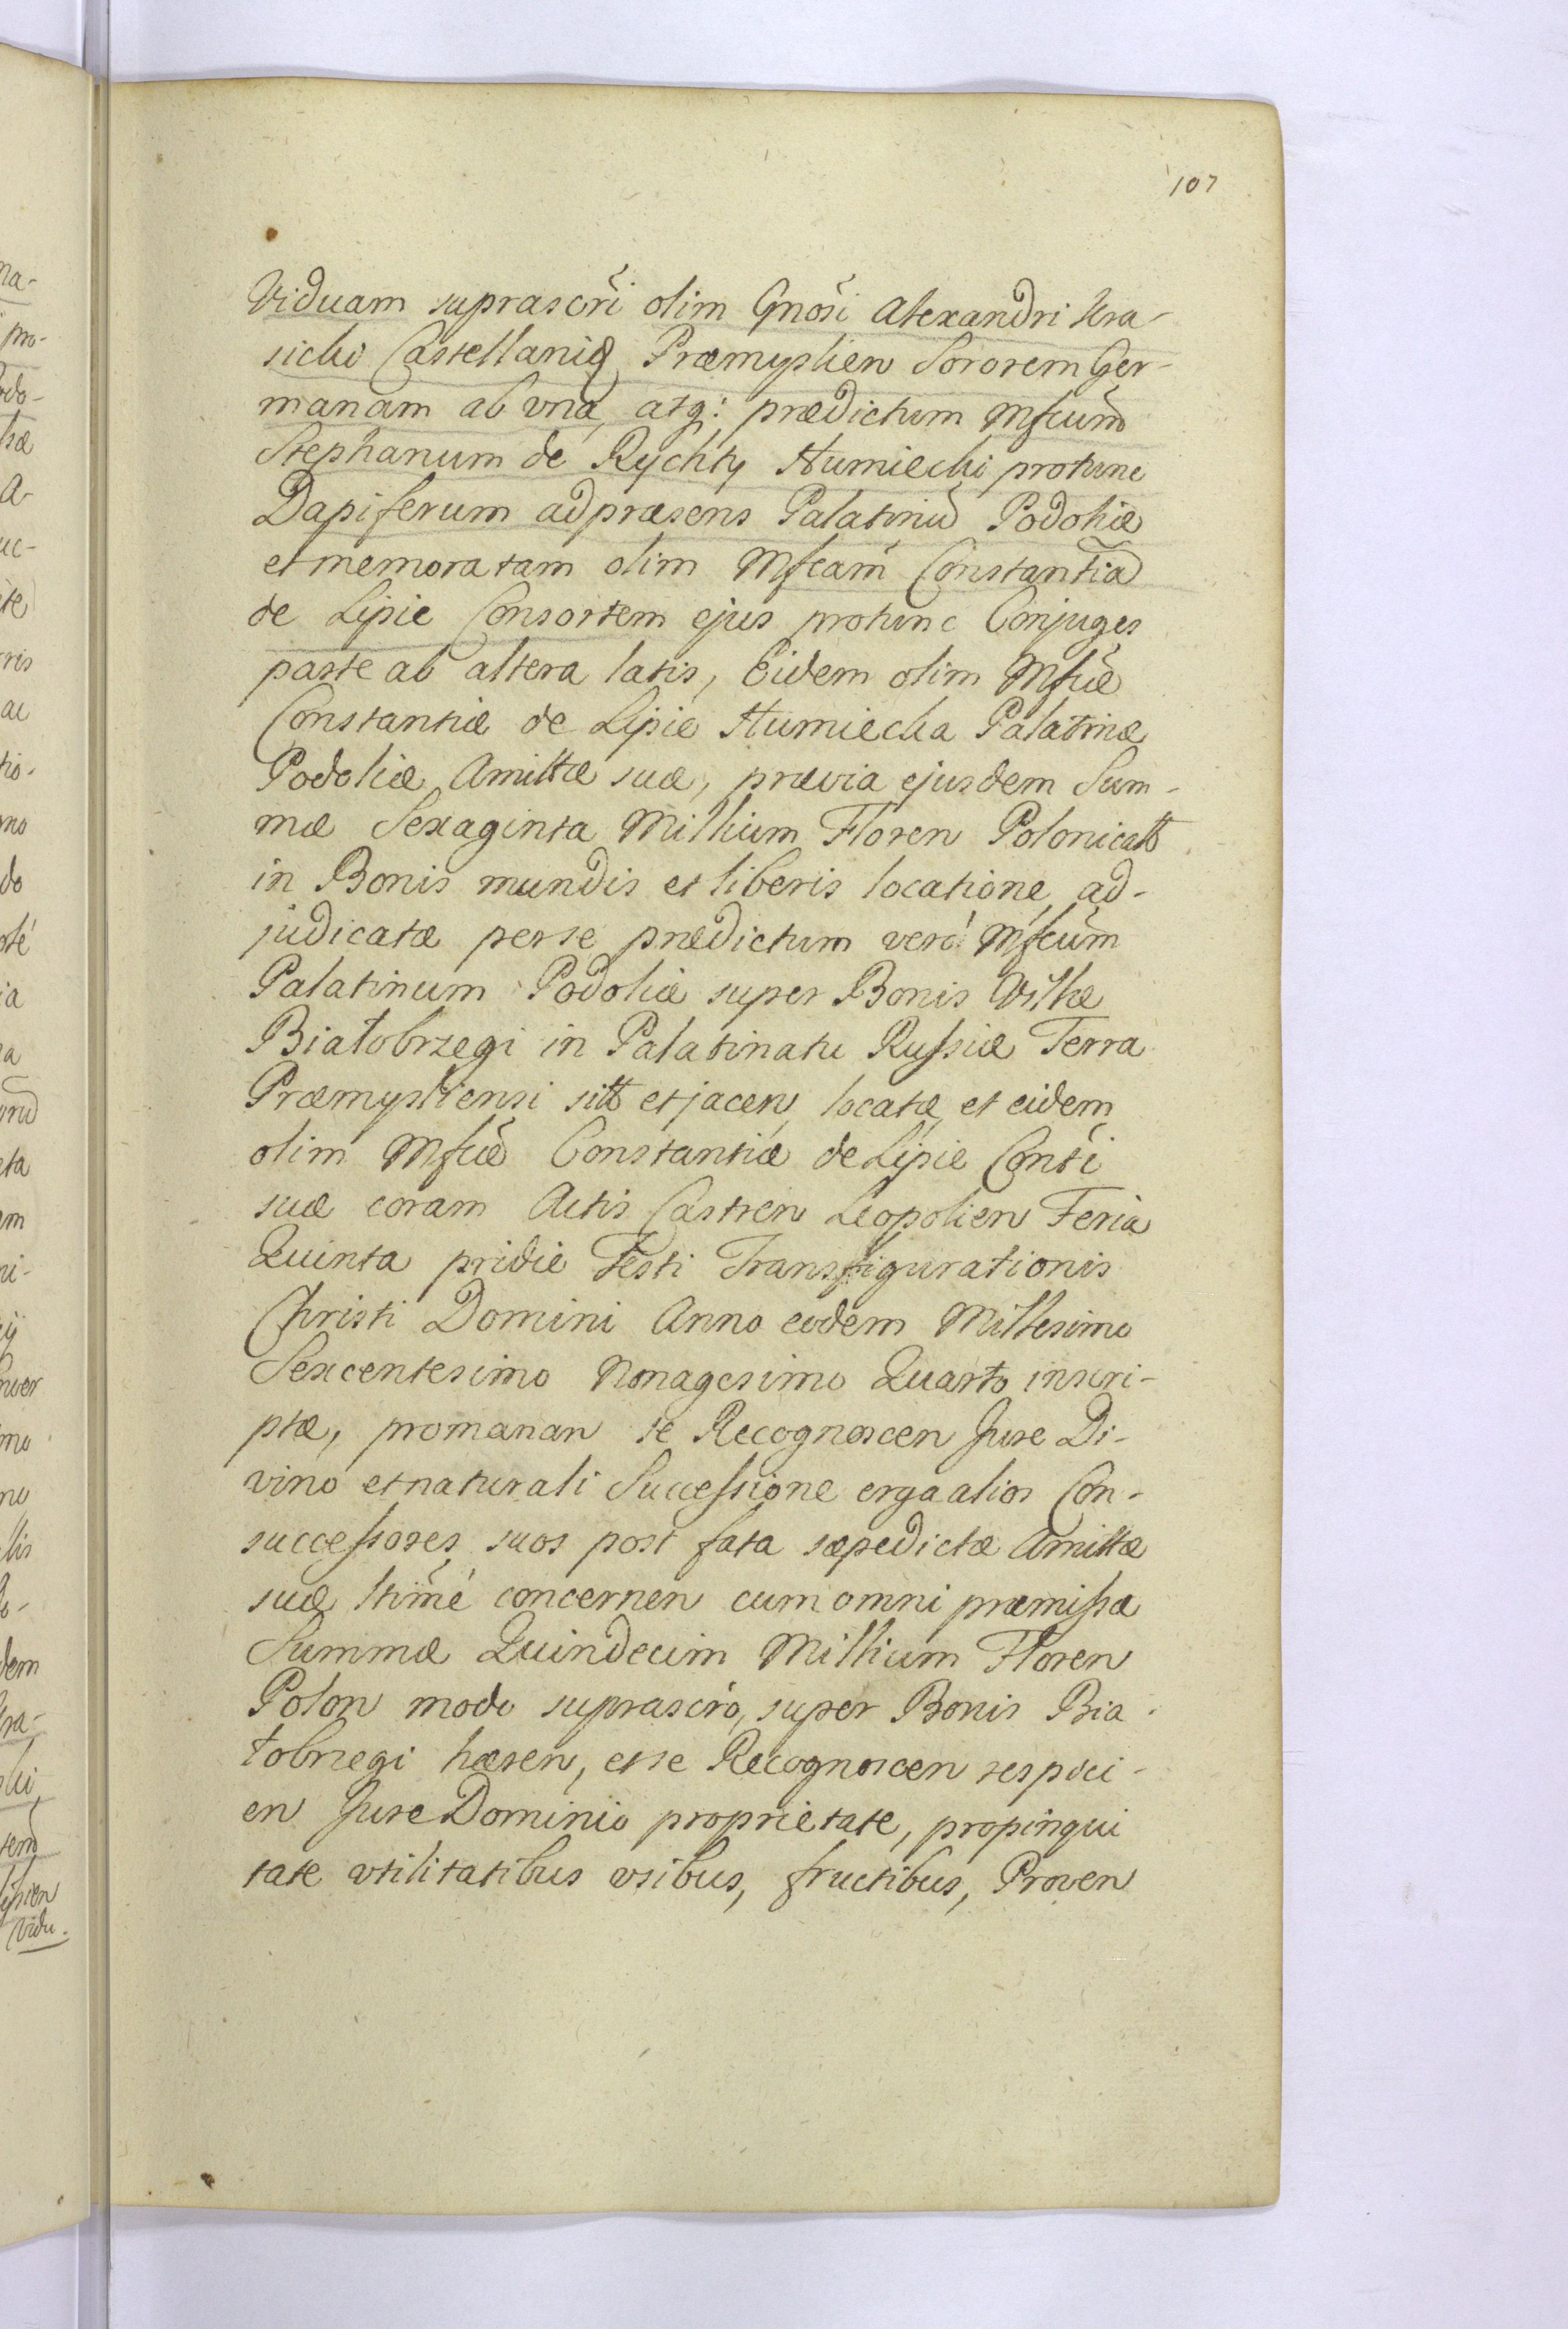 107
Viduam suprascri olim Gnosi Alexandri Kra-
sicki Castellanid Præmyslien Sororem Ger-
manam ab vna, atq: prædictum Mfcum
Stephanum de Rychty Humiecki protunc
Dapiferum ad præsens Palatinũ Podoliæ
et memoratam olim Mfcam Constantiã
de Lipie Consortem ejus protunc Conjuges
parte ab altera latis, Eidem olim Mfcæ
Constantiæ de Lipie Humiecka Palatinæ
Podoliæ Amittæ suæ, prævia ejusdem Sum-
mæ Sexaginta Millium Floren Polonicalt
in Bonis mundis et liberis locatione, ad-
judicatæ per se prædictum verò Mfcum
Palatinum Podoliæ super Bonis Villæ
Białobrzegi in Palatinatu Russiæ Terra
Præmysliensi sitt et jacen, locatæ, et eidem
olim Mfcæ Constantiæ de Lipie Conti
suæ coram Actis Castren Leopolien Feria
Quinta pridie Festi Transfigurationis
Christi Domini Anno eodem Millesimo
Sexcentesimo Nonagesimo Quarto inscri-
ptæ, promanan se Recognoscen Jure Di-
vino et naturali Successione erga alios Con-
successores suos post fata sæpedictæ Amittæ
suæ ltimé concernen cum omni præmissa
Summæ Quindecim Millium Floren
Polon modo suprascro, super Bonis Bia
łobrzegi hæren, et se Recognoscen respici-
en Jure Dominio proprietate, propinqui
tate vtilitatibus vsibus, fructibus, Proven